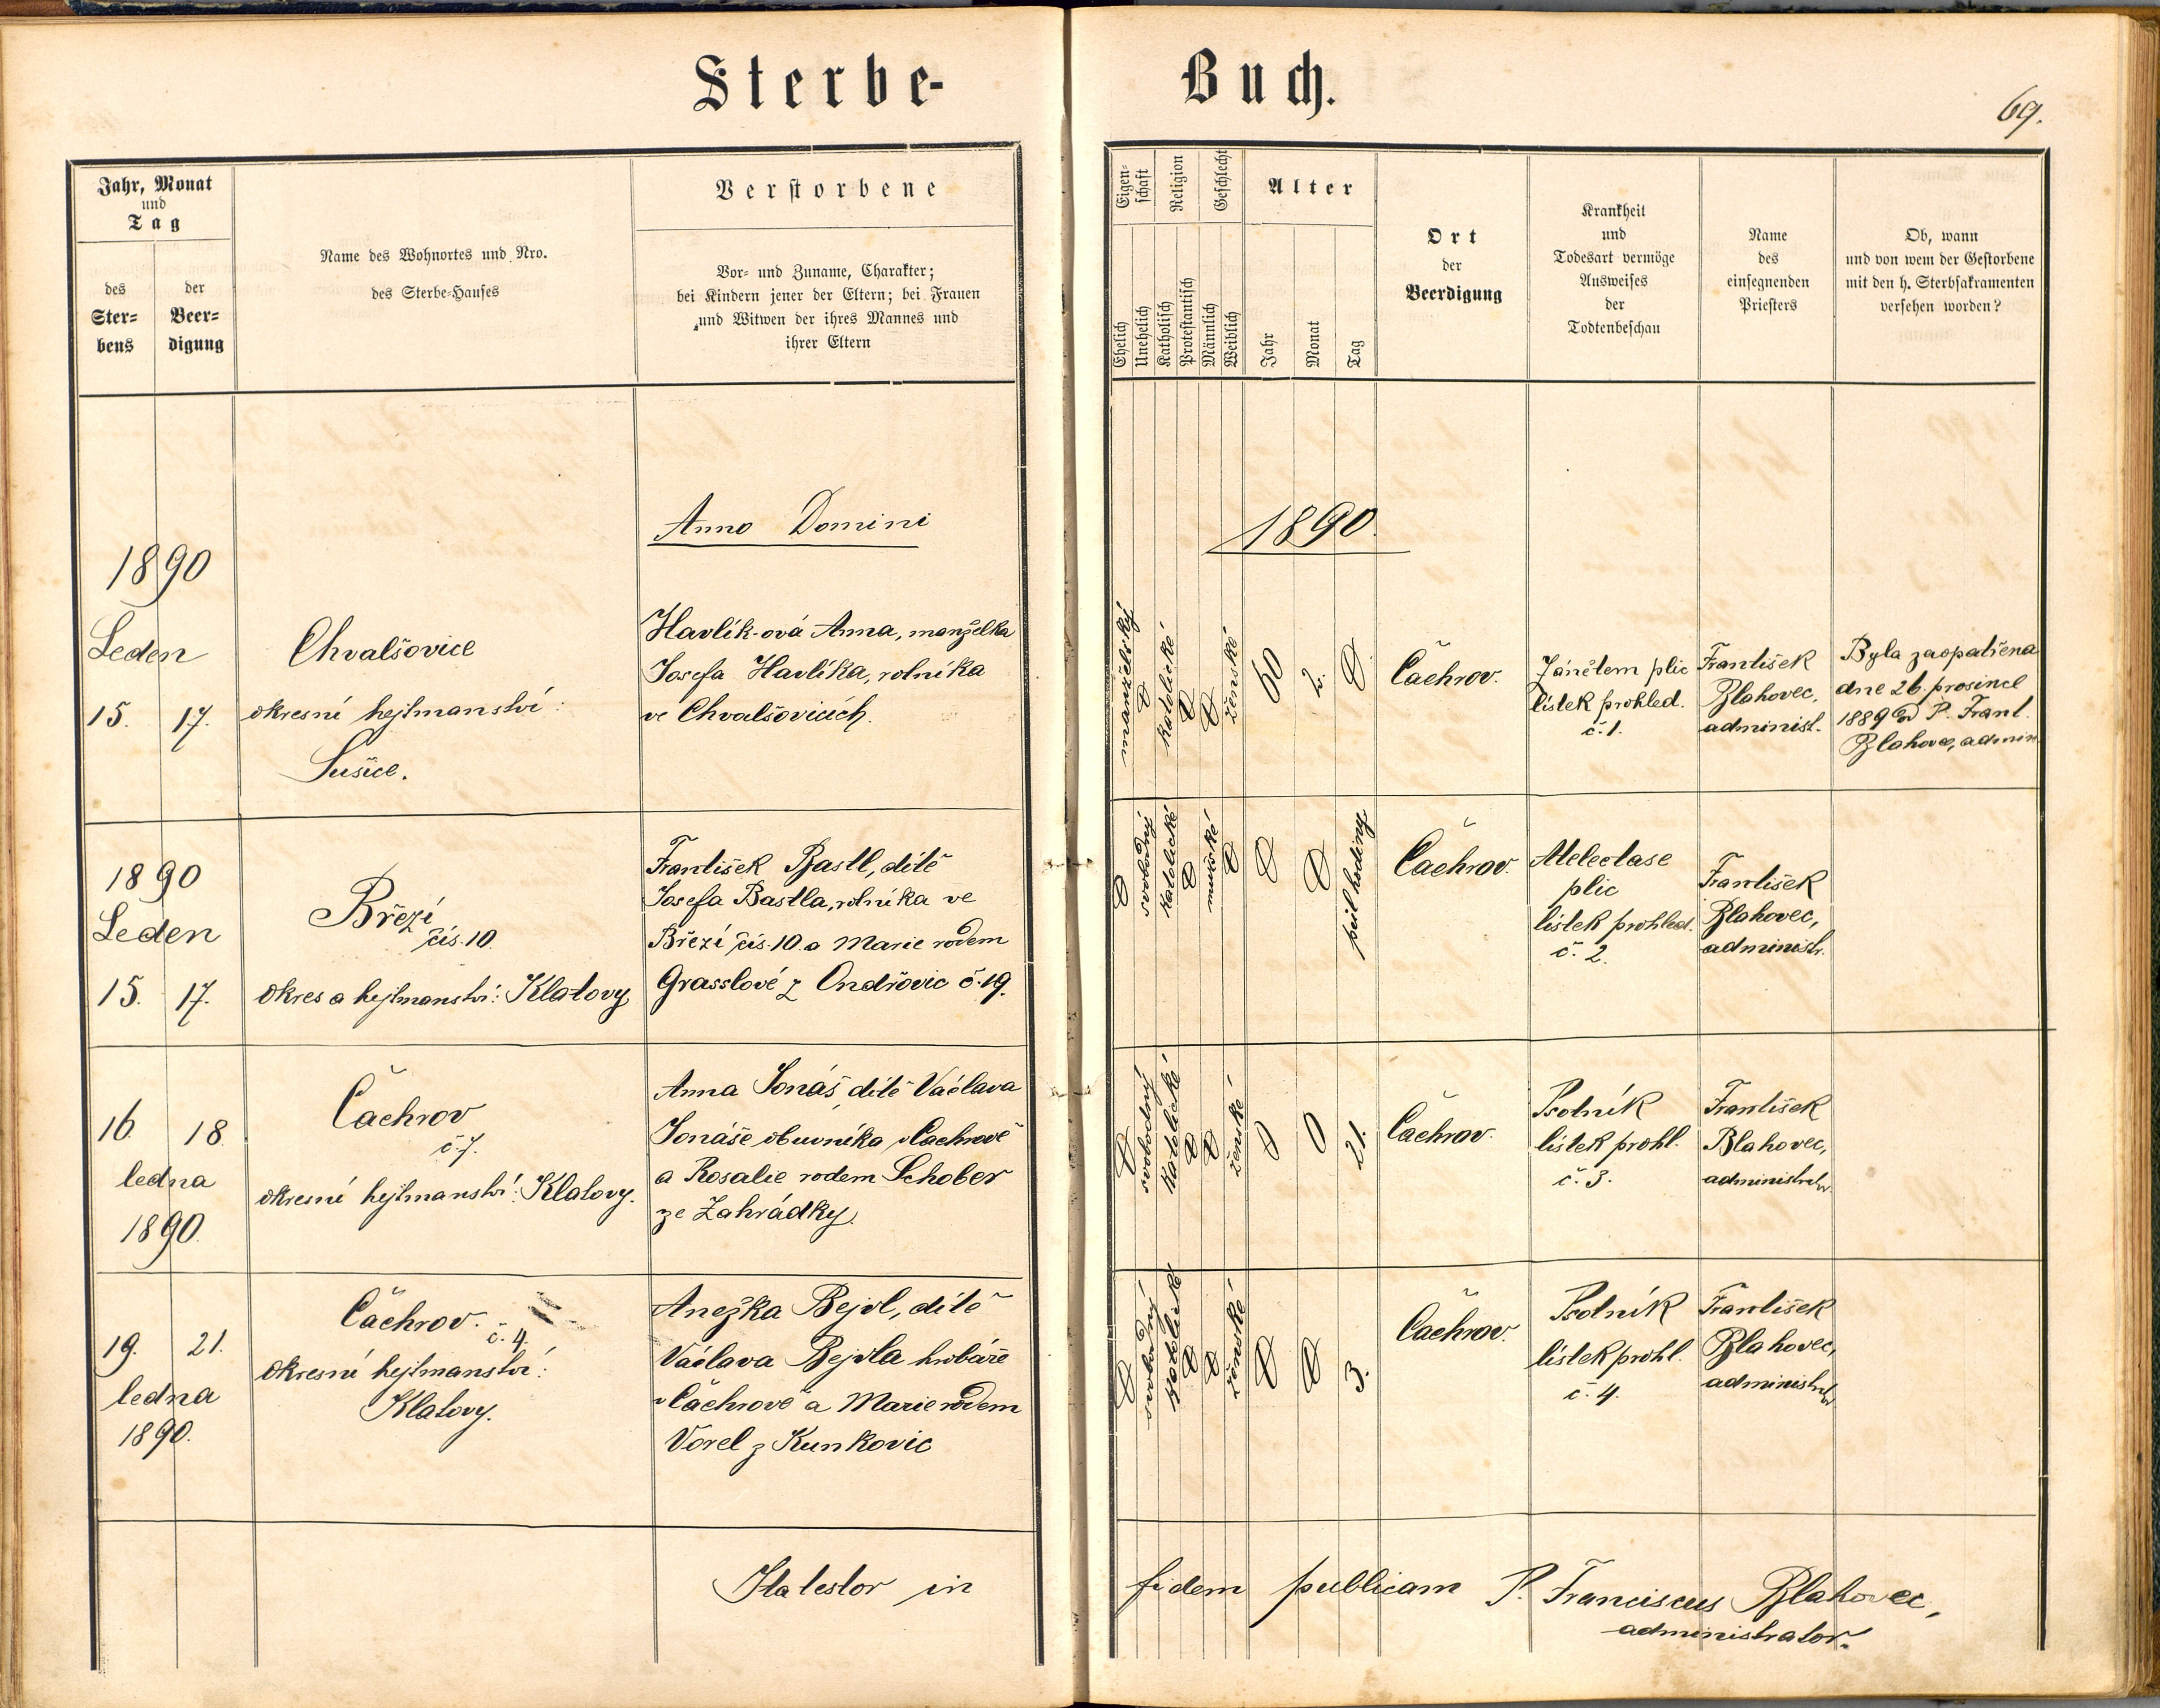 Sterbe-
Buch.
69.
Jahr, Monat
und
Tag
des
Ster-
bens
der
Beer-
digung
Name des Wohnortes und Nro.
des Sterbe-Hauses
Verstorbene
Vor- und Zuname, Charakter;
bei Kindern jener der Eltern; bei Frauen
und Witwen der ihres Mannes und
ihrer Eltern
Eigen-
schaft
Religion
Geschlecht
Ehelich
Unehelich
Katholisch
Protestantisch
Männlich
Weiblich
Alter
Jahr
Monat
Tag
Ort
der
Beerdigung
Krankheit
und
Todesart vermöge
Ausweises
der
Todtenbeschau
Name
des
einsegnenden
Priesters
Ob, wann
und von wem der Gestorbene
mit den h. Sterbsakramenten
versehen worden?
Anno Domini
1890.
1890
Leden
15. 17.
Chvalšovice
okresní hejtmanství:
Sušice.
Havlík-ová Anna, manželka
Josefa Havlíka, rolníka
ve Chvalšovicích.
manželský
katolické
ženské
60
2.
Čachrov.
Zánětem plic
lístek prohled.
č. 1.
František
Blahovec,
administ.
Byla zaopatřena
dne 26. prosince
1889 od P. Frant.
Blahovec, admin.
1890
Leden
15. 17.
Březí
čís. 10.
okres a hejtmanství: Klatovy
František Bastl, dítě
Josefa Bastla, rolníka ve
Březí čís. 10. a Marie rodem
Grasslové z Ondřovic č. 19.
svobodný
katolické
mužské
půl hodiny
Čachrov.
Atelectase
plic
lístek prohled.
č. 2.
František
Blahovec,
administr.
16. 18.
ledna
1890.
Čachrov
č. 7.
okresní hejtmanství: Klatovy.
Anna Jonáš, dítě Václava
Jonáše obuvníka v Čachrově
a Rosalie rodem Schober
ze Zahrádky.
svobodný
katolické
ženské
0
0
21.
Čachrov.
Psotník
lístek prohl.
č. 3.
František
Blahovec,
administrator
19. 21.
ledna
1890.
Čachrov.
č. 4.
okresní hejtmanství:
Klatovy.
Anežka Bejvl, dítě
Václava Bejvla hrobáře
v Čachrově a Marie rodem
Vorel z Kunkovic
svobodný
katolické
ženské
3.
Čachrov.
Psotník
lístek prohl.
č. 4.
František
Blahovec,
administrator
Ita testor in fidem publicam P. Franciscus Blahovec,
administrator.